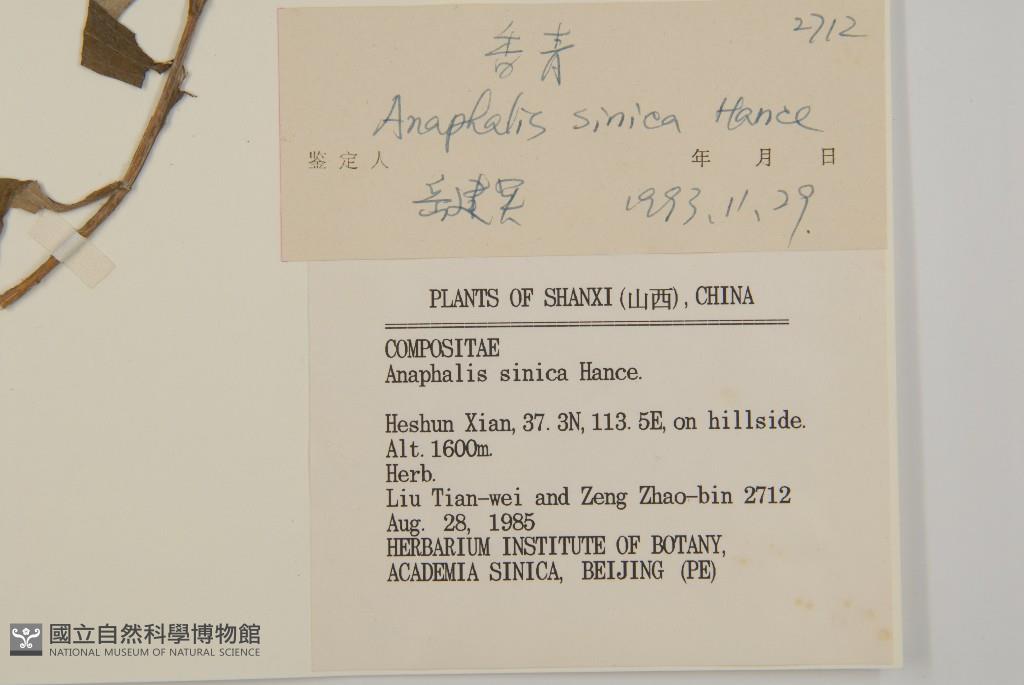 2712
香青
Anaphalis sinica Hance
鉴定人 年 月 日
岳建英 1993.11.29.
PLANTS OF SHANXI (山西), CHINA
COMPOSITAE
Anaphalis sinica Hance.
Heshun Xian, 37. 3N, 113. 5E, on hillside.
Alt. 1600m.
Herb.
Liu Tian-wei and Zeng Zhao-bin 2712
Aug. 28, 1985
HERBARIUM INSTITUTE OF BOTANY,
ACADEMIA SINICA, BEIJING (PE)
國立自然科學博物館
NATIONAL MUSEUM OF NATURAL SCIENCE